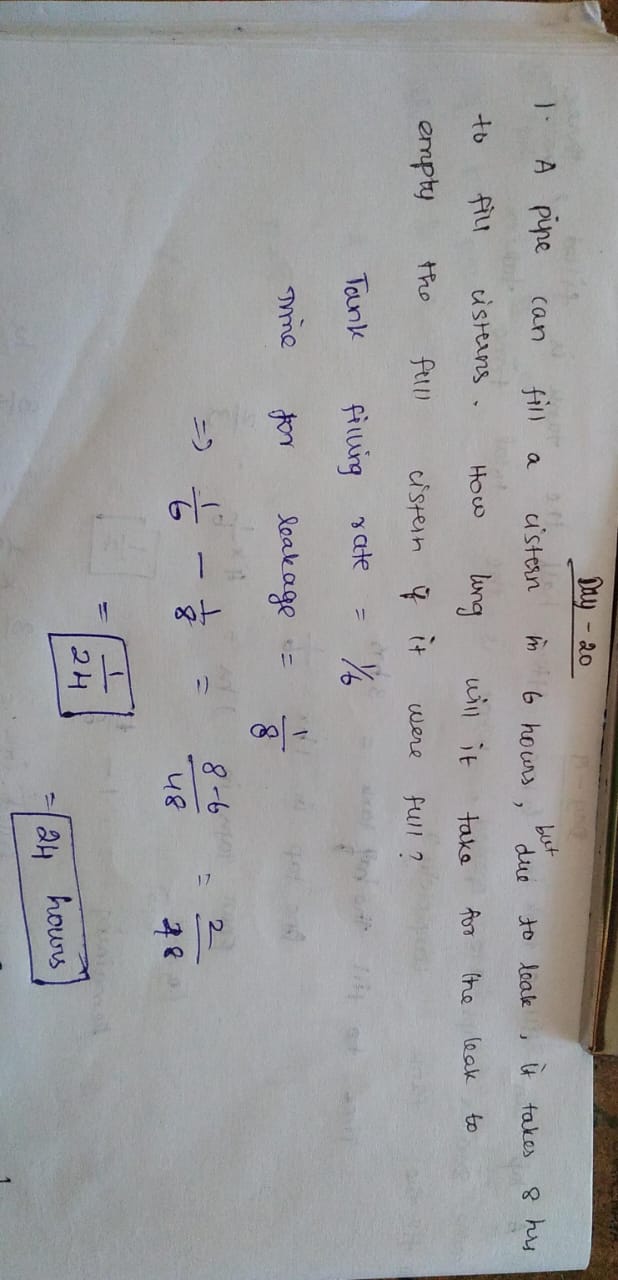 Day - 20
1. A pipe can fill a cistern in 6 hours, but due to leak, it takes 8 hrs
to fill cisterns. How long will it take for the leak to
empty the full cistern if it were full?
Tank filling rate = 1/6
Time for leakage = 1/8
=> 1/6 - 1/8 = 8-6/48 = 2/48
= 1/24
= 24 hours